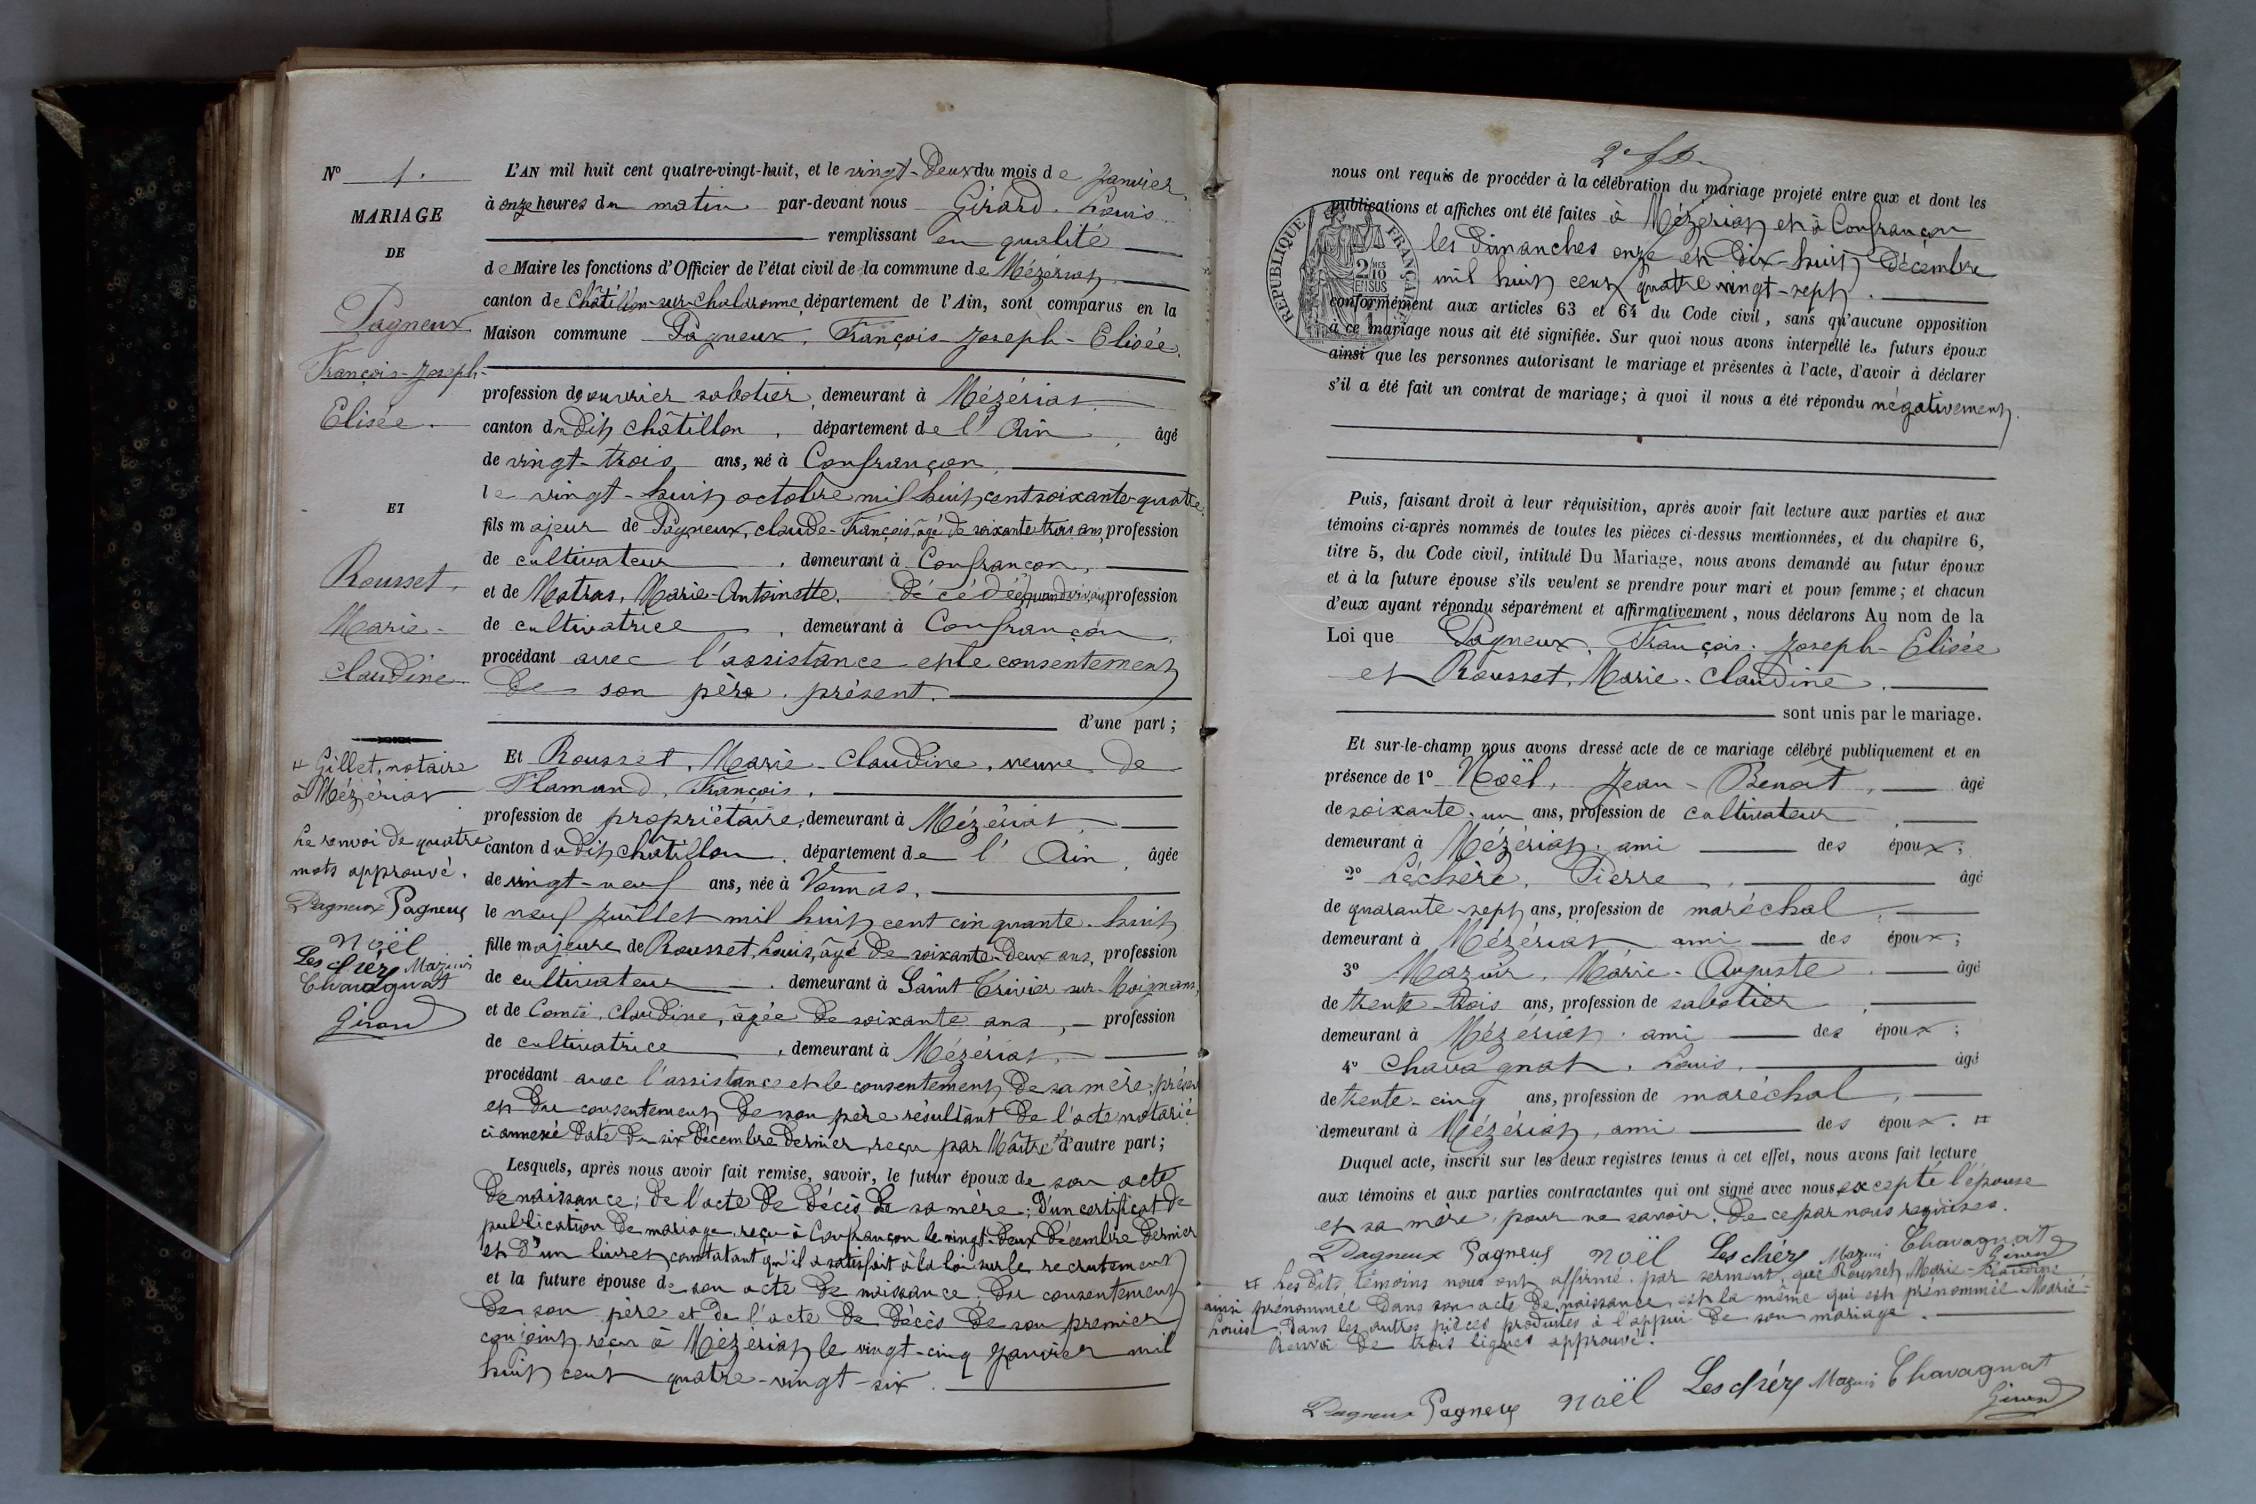 N° 1.
MARIAGE
DE
Pagneux
François-Joseph-
Elisée.
ET
Rousset,
Marie-
Claudine.
# Gillet, notaire
à Mézériat
Le renvoi de quatre
mots approuvé.
Pagneux Pagneux
Noël
Leschère Mazuir
Chavagnat
Girard
L'AN mil huit cent quatre-vingt-huit, et le vingt-deux du mois de Janvier,
à onze heures du matin par-devant nous Girard, Louis
remplissant en qualité
de Maire les fonctions d'Officier de l'état civil de la commune de Mézériat,
canton de Châtillon-sur-Chalaronne, département de l'Ain, sont comparus en la
Maison commune Pagneux, François-Joseph-Elisée,
profession de ouvrier sabotier, demeurant à Mézériat,
canton dudit Châtillon, département de l'Ain, âgé
de vingt-trois ans, né à Confrançon,
le vingt-huit octobre mil huit cent soixante-quatre,
fils majeur de Pagneux, Claude-François, âgé de soixante-trois ans, profession
de cultivateur, demeurant à Confrançon,
et de Matras, Marie-Antoinette, décédée, quand vivait, profession
de cultivatrice, demeurant à Confrançon,
procédant avec l'assistance et le consentement
de son père, présent.
d'une part;
Et Rousset, Marie-Claudine, veuve de
Flamand, François,
profession de propriétaire, demeurant à Mézériat,
canton dudit Châtillon, département de l'Ain, âgée
de vingt-neuf ans, née à Vonnas,
le neuf Juillet mil huit cent cinquante-huit
fille majeure de Rousset, Louis, âgé de soixante-deux ans, profession
de cultivateur, demeurant à Saint Trivier-sur-Moignans,
et de Comte, Claudine, âgée de soixante ans, profession
de cultivatrice, demeurant à Mézériat,
procédant avec l'assistance et le consentement de sa mère, présente
et du consentement de son père résultant de l'acte notarié
ci annexé daté du six décembre dernier, reçu par Maître # d'autre part;
Lesquels, après nous avoir fait remise, savoir, le futur époux de son acte
de naissance; de l'acte de décès de sa mère; d'un certificat de
publication de mariage, reçu à Confrançon le vingt-deux décembre dernier
et d'un livret constatant qu'il a satisfait à la loi sur le recrutement
et la future épouse de son acte de naissance; du consentement
de son père et de l'acte de décès de son premier
conjoint, reçu à Mézériat le vingt-cinq Janvier mil
huit cent quatre-vingt-six.
nous ont requis de procéder à la célébration du mariage projeté entre eux et dont les
publications et affiches ont été faites à Mézériat et à Confrançon
les dimanches onze et dix-huit décembre
mil huit cent quatre vingt-sept.
RÉPUBLIQUE FRANÇAISE
conformément aux articles 63 et 64 du Code civil, sans qu'aucune opposition
à ce mariage nous ait été signifiée. Sur quoi nous avons interpellé les futurs époux
ainsi que les personnes autorisant le mariage et présentes à l'acte, d'avoir à déclarer
s'il a été fait un contrat de mariage; à quoi il nous a été répondu négativement.
Puis, faisant droit à leur réquisition, après avoir fait lecture aux parties et aux
témoins ci-après nommés de toutes les pièces ci-dessus mentionnées, et du chapitre 6,
titre 5, du Code civil, intitulé Du Mariage, nous avons demandé au futur époux
et à la future épouse s'ils veulent se prendre pour mari et pour femme; et chacun
d'eux ayant répondu séparément et affirmativement, nous déclarons Au nom de la
Loi que Pagneux, François-Joseph-Elisée
et Rousset, Marie-Claudine,
sont unis par le mariage.
Et sur-le-champ nous avons dressé acte de ce mariage célébré publiquement et en
présence de 1° Noël, Jean-Benoît, âgé
de soixante-un ans, profession de cultivateur,
demeurant à Mézériat, ami des époux;
2° Léchère, Pierre, âgé
de quarante-sept ans, profession de maréchal,
demeurant à Mézériat, ami des époux;
3° Mazuir, Marie-Auguste, âgé
de trente-trois ans, profession de sabotier,
demeurant à Mézériat, ami des époux;
4° Chavagnat, Louis, âgé
de trente-cinq ans, profession de maréchal,
demeurant à Mézériat, ami des époux. #
Duquel acte, inscrit sur les deux registres tenus à cet effet, nous avons fait lecture
aux témoins et aux parties contractantes qui ont signé avec nous, excepté l'épouse
et sa mère, pour ne savoir, de ce par nous requises.
Pagneux Pagneux Noël Leschère Mazuir Chavagnat
Girard
# Les dits témoins nous ont affirmé par serment que Rousset, Marie-Claudine
ainsi prénommée dans son acte de naissance est la même qui est prénommée Marie-
Louise dans les autres pièces produites à l'appui de son mariage.
Renvoi de trois lignes approuvé.
Pagneux Pagneux Noël Leschère Mazuir Chavagnat
Girard